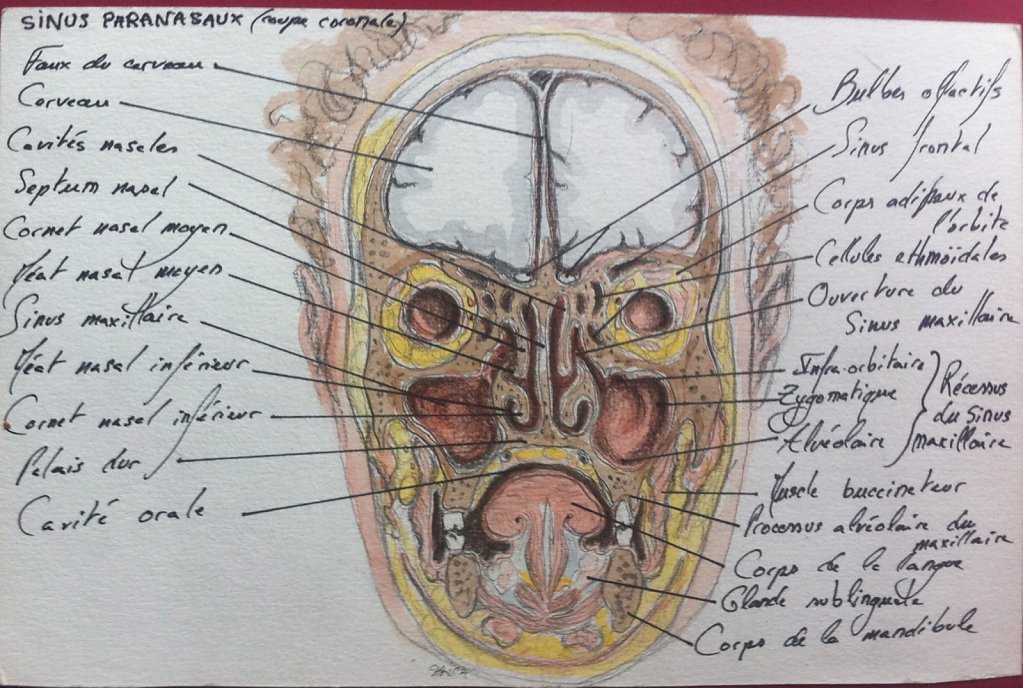 SINUS PARANASAUX (coupe coronale)
Faux du cerveau
Cerveau
Cavités nasales
Septum nasal
Cornet nasal moyen
Méat nasal moyen
Sinus maxillaire
Méat nasal inférieur
Cornet nasal inférieur
Palais dur
Cavité orale
Bulbes olfactifs
Sinus frontal
Corps adipeux de
l'orbite
Cellules ethmoïdales
Ouverture du
Sinus maxillaire
Infra-orbitaire
Zygomatique
Alvéolaire
Récessus
du Sinus
maxillaire
Muscle buccinateur
Processus alvéolaire du
maxillaire
Corps de la langue
Glande sublinguale
Corps de la mandibule